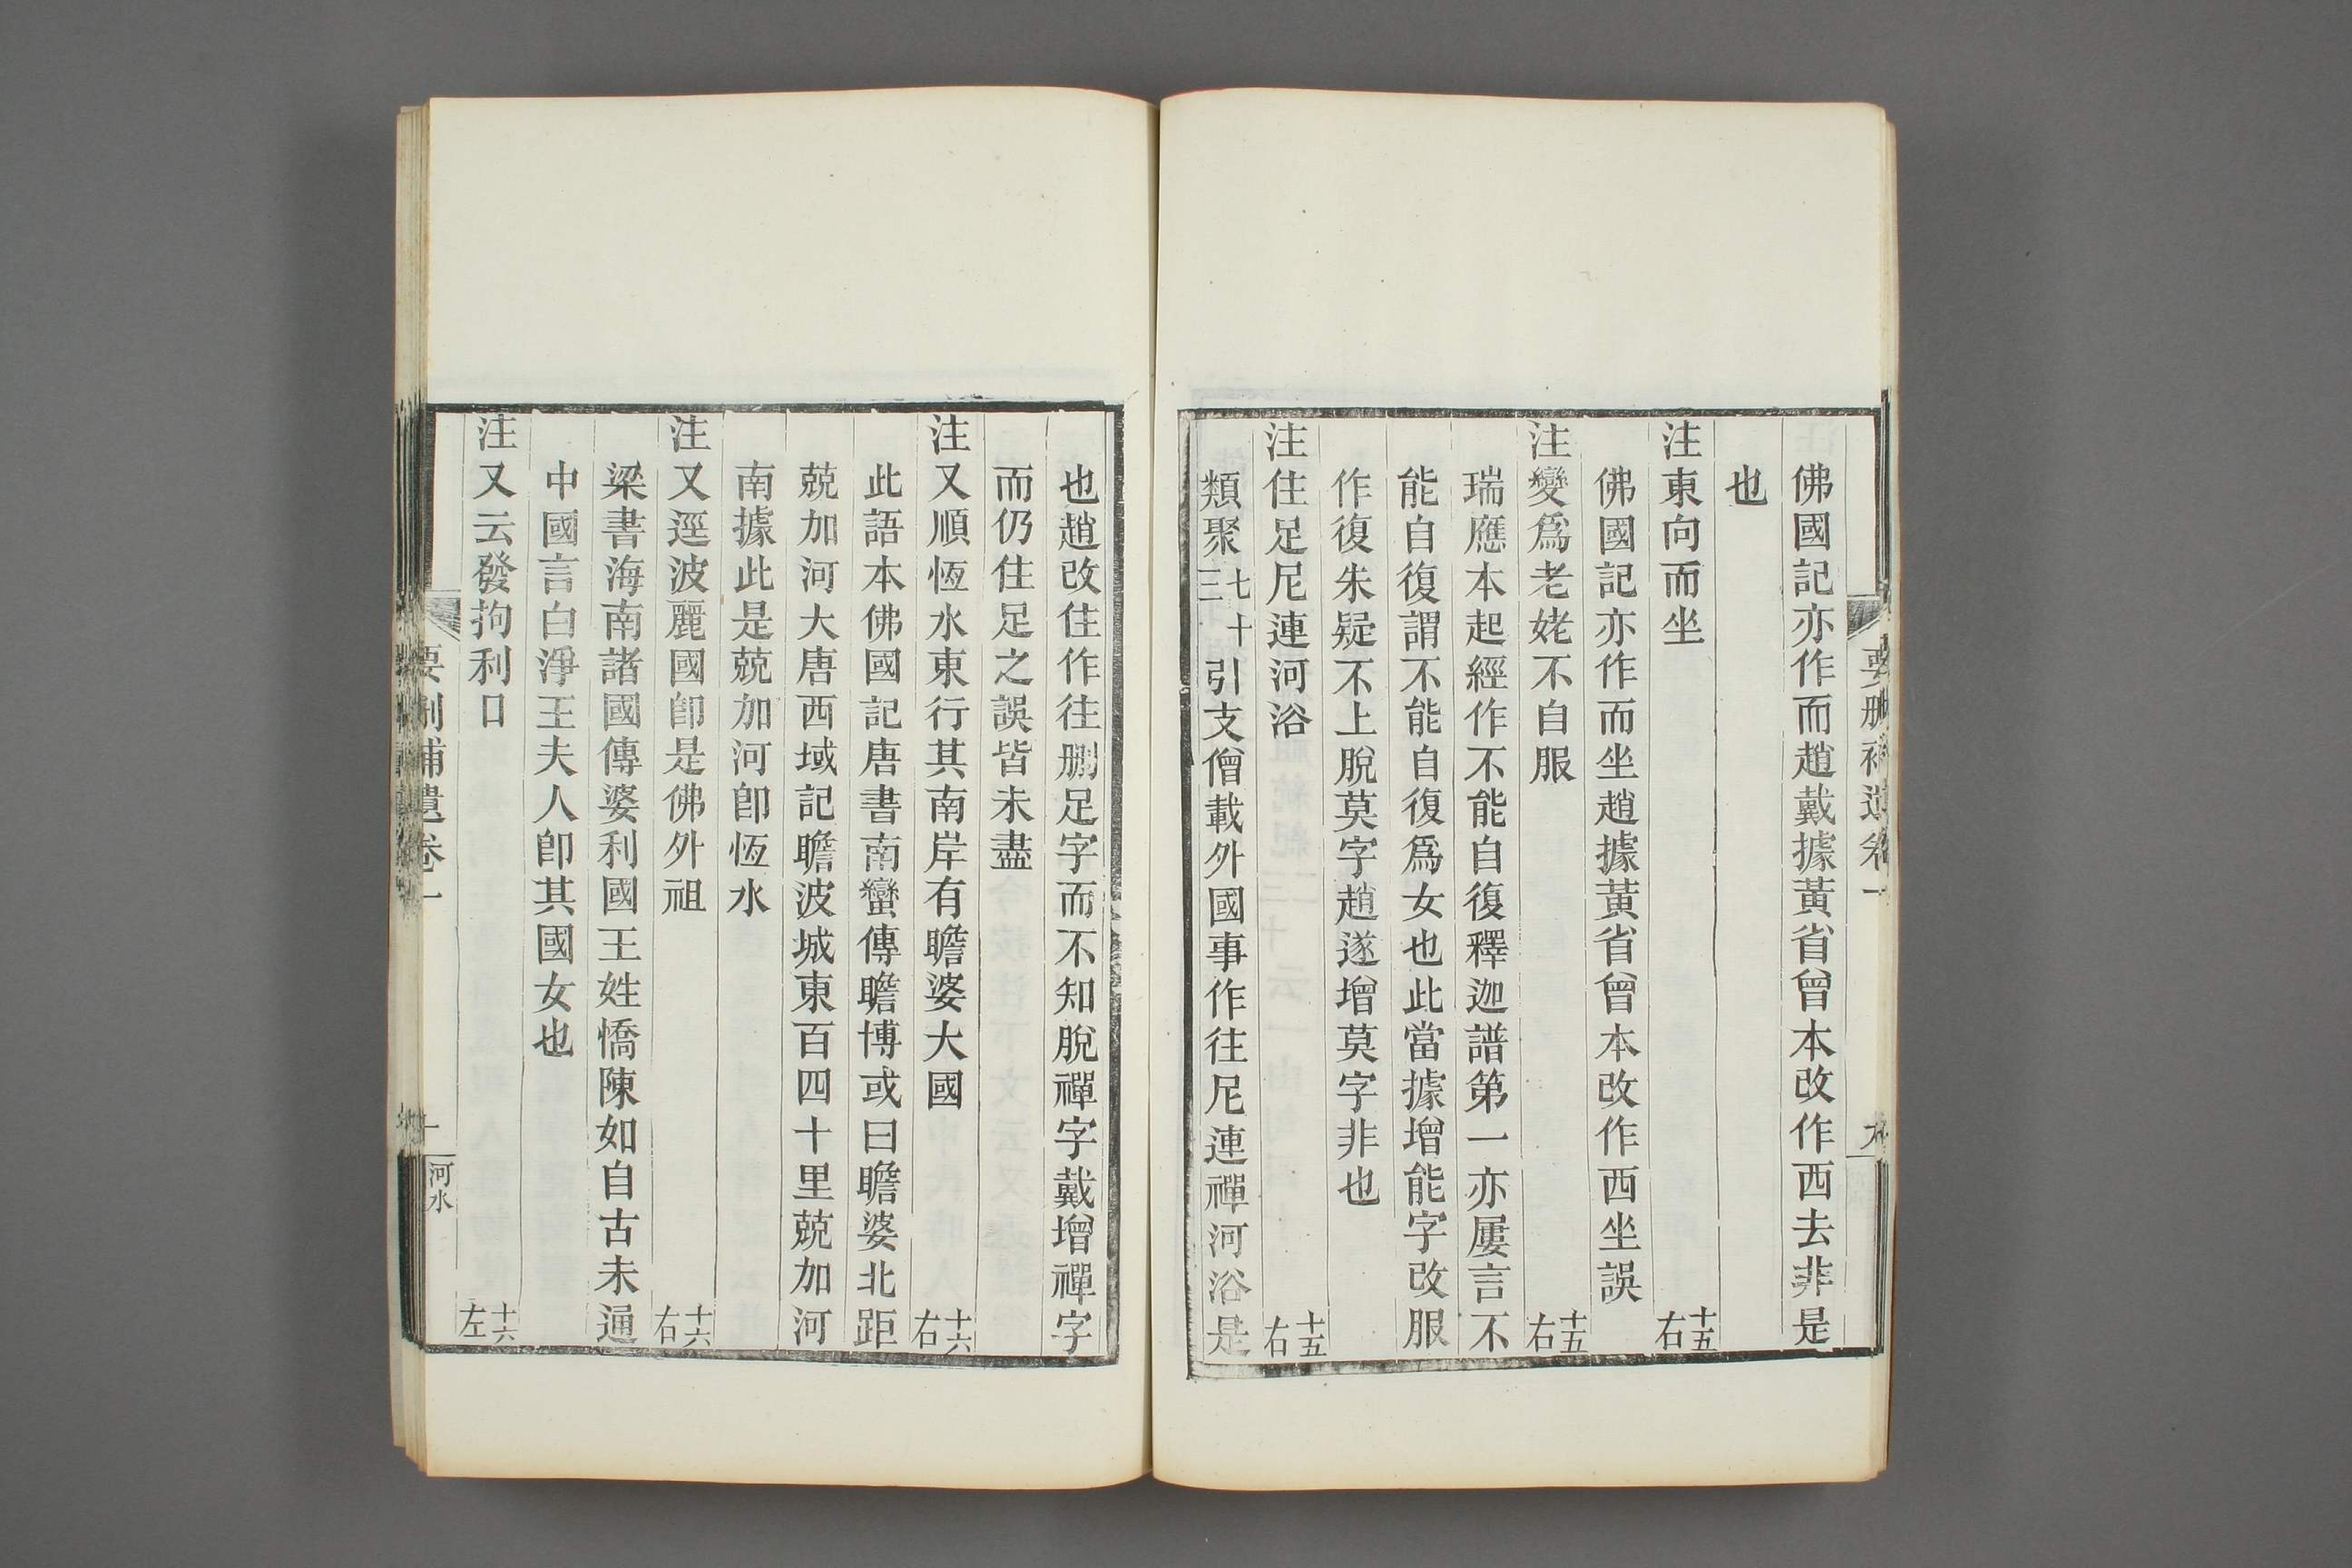 佛國記亦作而趙戴據黃省曾本改作西去非是
也
注東向而坐 十五右
佛國記亦作而坐趙據黃省曾本改作西坐誤
注變爲老姥不自服 十五右
瑞應本起經作不能自復釋迦譜第一亦屢言不
能自復謂不能自復爲女也此當據增能字改服
作復朱疑不上脫莫字趙遂增莫字非也
注住足尼連河浴 十五右
類聚七十三引支僧載外國事作往尼連禪河浴是
也趙改住作往刪足字而不知脫禪字戴增禪字
而仍住足之誤皆未盡
注又順恆水東行其南岸有瞻婆大國 十六右
此語本佛國記唐書南蠻傳瞻博或曰瞻婆北距
兢加河大唐西域記瞻波城東百四十里兢加河
南據此是兢加河卽恆水
注又逕波麗國卽是佛外祖 十六右
梁書海南諸國傳婆利國王姓憍陳如自古未通
中國言白淨王夫人卽其國女也
注又云發拘利口 十六左
要刪補遺卷一
河水